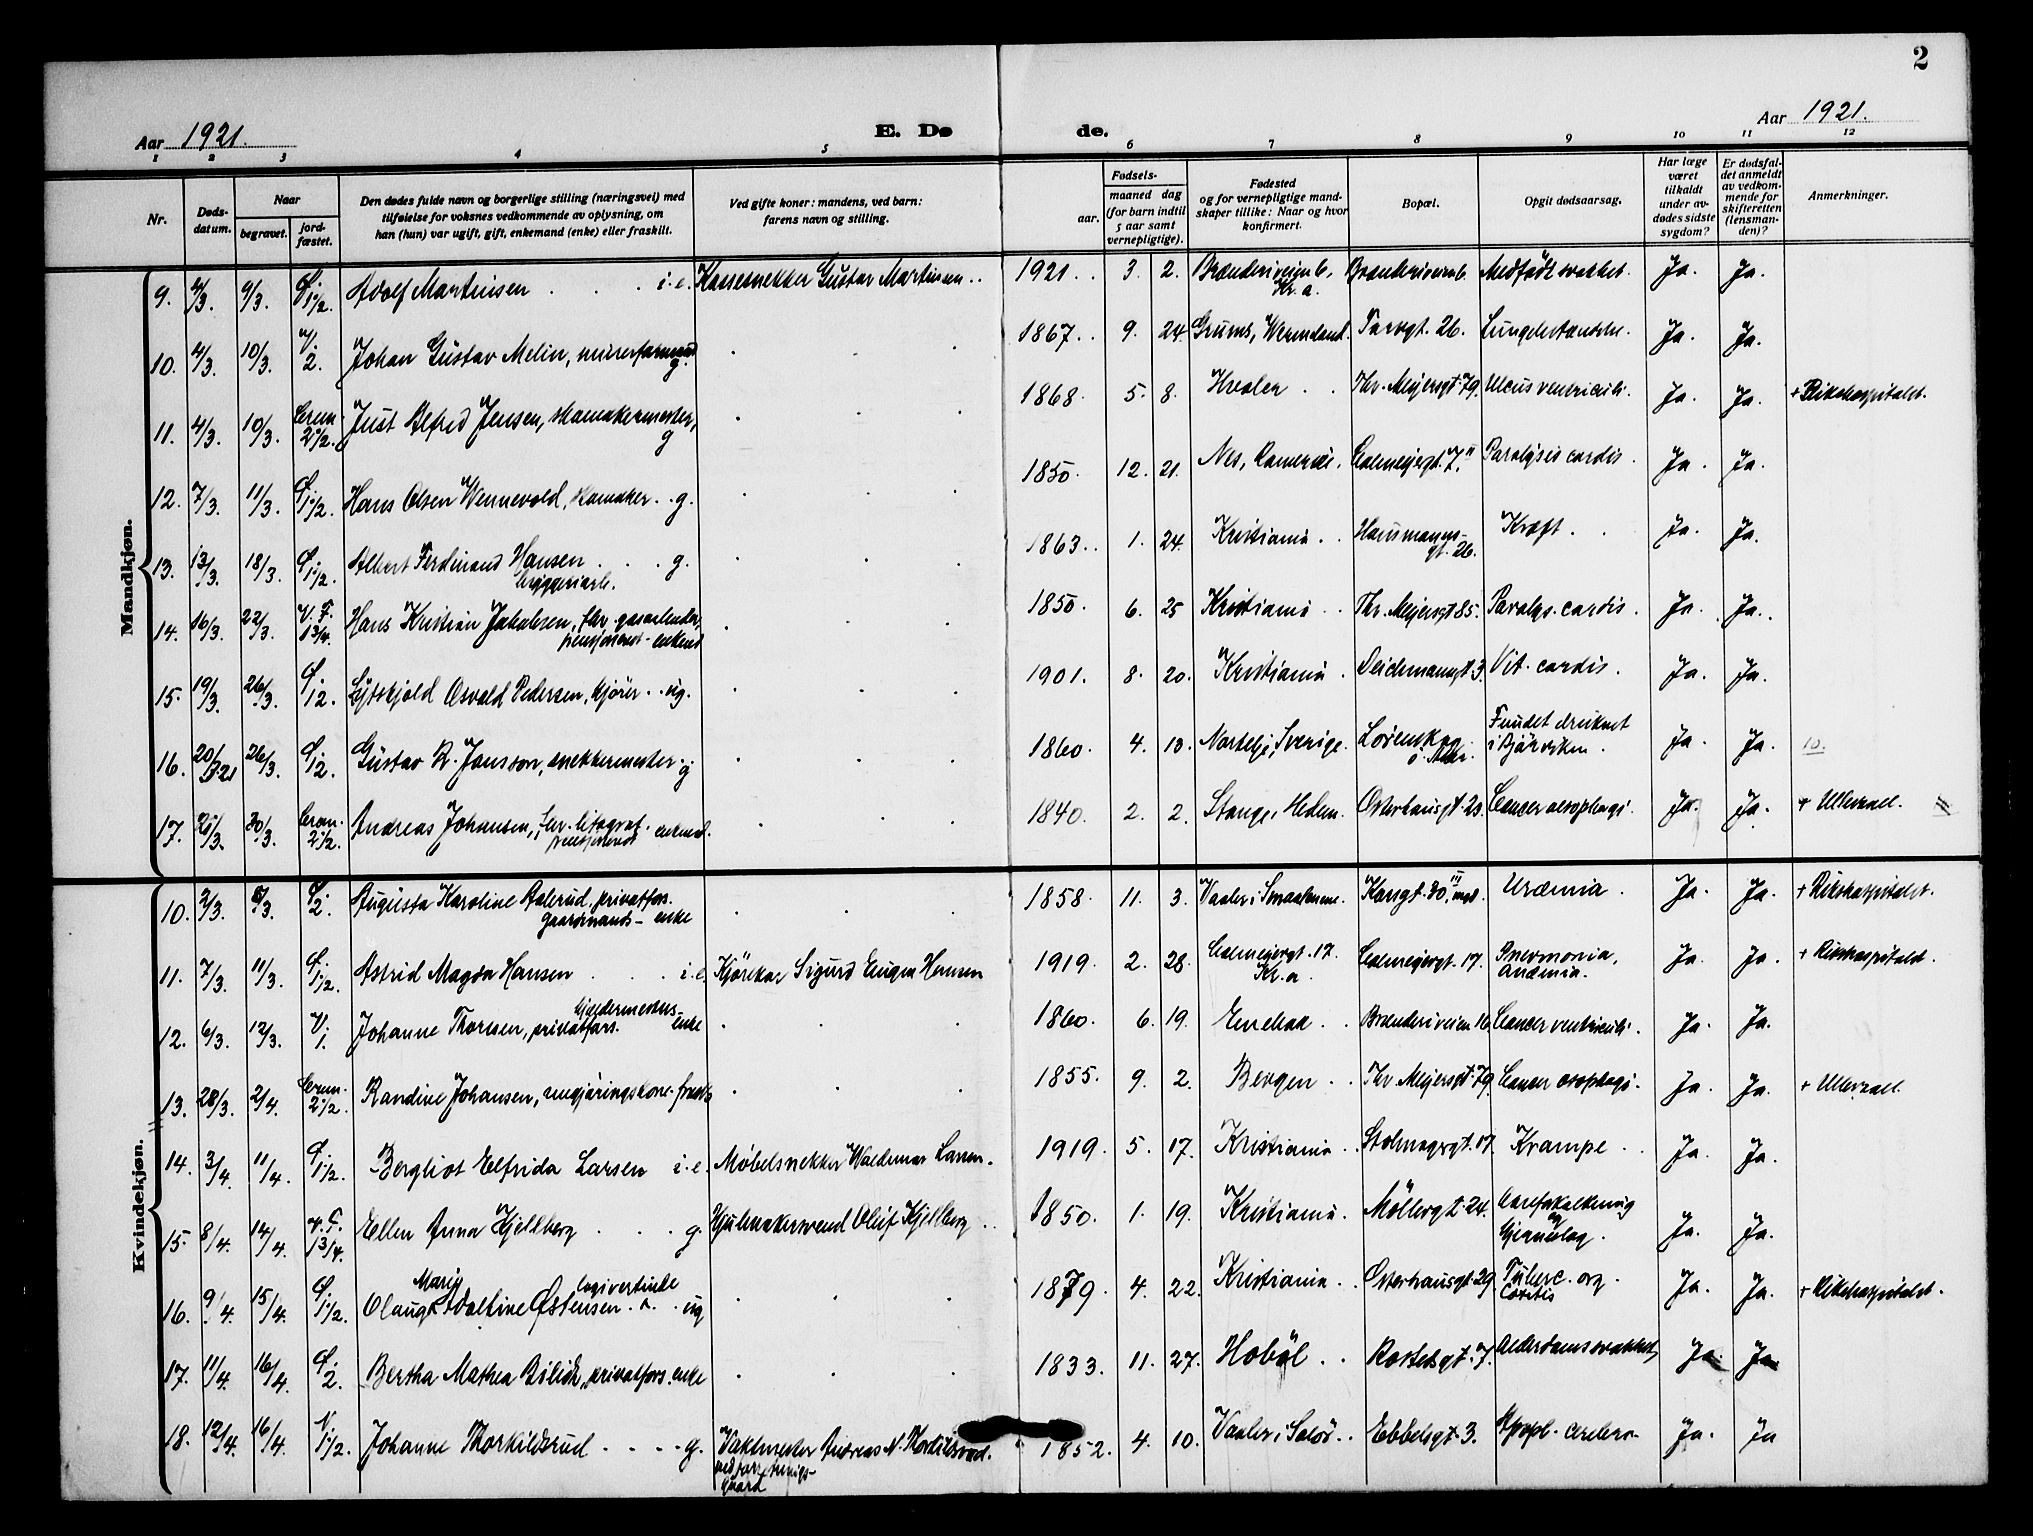 2
Aar 1921.
E. Dø
de.
Aar 1921.
1 2 3 4 5 6 7 8 9 10 11 12
Nr.
Døds-
datum.
Naar
begravet.
jord-
fæstet.
Den dødes fulde navn og borgerlige stilling (næringsvei) med
tilføielse for voksnes vedkommende av oplysning, om
han (hun) var ugift, gift, enkemand (enke) eller fraskilt.
Ved gifte koner: mandens, ved barn:
farens navn og stilling.
Fødsels-
aar.
maaned dag
(for barn indtil
5 aar samt
vernepligtige).
Fødested
og for vernepligtige mand-
skaper tillike: Naar og hvor
konfirmert.
Bopæl.
Opgit dødsaarsag.
Har læge
været
tilkaldt
under av-
dødes sidste
sygdom?
Er dødsfal-
det anmeldt
av vedkom-
mende for
skifteretten
(lensman-
den)?
Anmerkninger.
Mandkjøn.
9. 4/3. 9/3. Adolf Martinsen i.e. Kassesnekker Gustav Martinsen 1921. 3. 2. Brænderiveien 6, Kr.a. Brænderiveien 6. Medfødt svakhet. Ja. Ja.
10. 4/3. 10/3. V. 2. Johan Gustav Melin, murerformand g. 1867. 9. 24. Grums, Wermland. Torvgt. 26. Lungebetændelse. Ja. Ja.
11. 4/3. 10/3. Crem. 2 1/2. Just Alfred Jensen, skomakermester, g 1868. 5. 8. Hvaler. Thv. Meyersgt. 79. Ulcus ventriculi. Ja. Ja. + Rikshospitalet.
12. 7/3. 11/3. 1 1/2. Hans Olsen Wennevold, skomaker. g. 1850. 12. 21. Nes, Romerike. Calmeyergt. 7. II Paralysis cordis. Ja. Ja.
13. 13/3. 18/3. 1 1/2. Albert Ferdinand Hansen g. bryggeriarb. 1863. 1. 24. Kristiania. Hausmanns-
gt. 26. Kræft. Ja. Ja.
14. 16/3. 22/3. V. F. 13/4. Hans Kristian Jakobsen, fhv. gasarbeider, pensjonert - enkemd 1850. 6. 25 Kristiania. Thv. Meyersgt 85. Paralys. cordis. Ja. Ja.
15. 19/3. 26/3. 12. Lyttskjold Osvald Pedersen, kjører. ug. 1901. 8. 20. Kristiania. Deichmannsgt 3. Vit. cordis. Ja. Ja.
16. 20/3 21 26/3. 12. Gustav R. Jansson, snekkermester. g. 1860. 4. 10. Nortelje, Sverige. Lørenskog i Aker. Fundet druknet
i Bjørviken. Ja. Ja. 10.
17. 25/3. 30/3. Crem. 2 1/2. Andreas Johansen, fhv. litograf. pensjonert enkemd. 1840. 2. 2. Stange, Hedm. Osterhausgt. 23. Cancer oesophagi. Ja. Ja. + Ullevaal.
Kvindekjøn.
10. 2/3. 8/3. 2. Augusta Karoline Aalerud, privatfors. gaardmands - enke 1858. 11. 3. Vaaler i Smaalenene. Langgt. 30. III Urœmia. Ja. Ja. + Rikshospitalet.
11. 7/3. 11/3. 1 1/2. Astrid Magda Hansen i.e. Kjørekar Sigurd Eugen Hansen 1919. 2. 28. Calmeyergt. 17. Kr.a Calmeyergt. 17. Pnevmonia, anæmia. Ja. Ja. + Rikshospitalet.
12. 6/3. 12/3. V. 1. Johanne Thoresen, privatfors. enke 1860. 6. 19. Enebak. Brænderiveien 16. Cancer ventriculi. Ja. Ja.
13. 28/3. 2/4. Crem. 2 1/2. Randine Johansen, rengjøringskone. fraskilt 1855. 9. 2. Bergen. Thv. Meyersgt. 79. Cancer oesophagi. Ja. Ja. + Ullevaal.
14. 3/4. 11/4. 1 1/2. Bergliot Elfrida Larsen i.e. Møbelsnekker Waldemar Larsen. 1919. 5. 17. Kristiania. Stolmagergt. 17. Krampe. Ja. Ja.
15. 8/4. 14/4. v. F. 13/4. Ellen Anna Kjellberg g. Hjulmakersvend Oluf Kjellberg 1850. 1. 19. Kristiania. Møllergt. 24. Aareforkalkning
og
Hjerneslag. Ja. Ja.
16. 9/4. 15/4. 1 1/2. Olaug Marie Adolfine Østensen. logivertinde ug 1879. 4. 22. Kristiania. Osterhausgt. 29. Tuberc. org.
Coxitis Ja. Ja. + Rikshospitalet.
17. 11/4. 16/4. 2. Bertha Mathea Bilidt, privatfors. enke 1833. 11. 27. Hobøl. Rostedsgt. 7. Alderdomssvakhet. Ja. Ja
18. 12/4. 16/4. V. 1 1/2. Johanne Thorkildsrud g. Vaktmester Andreas N. Thorkildsrud. ved forretnings-
gaard 1852. 4. 10. Vaaler i Solør. Ebbelsgt. 3. Apopl. cerebri. Ja. Ja